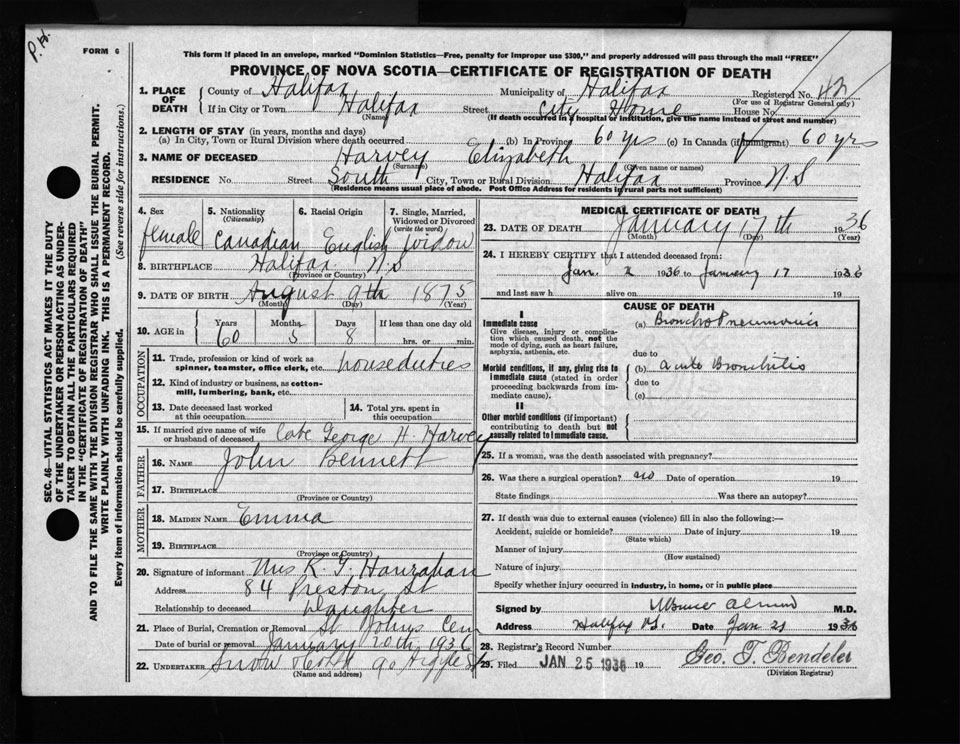 P.H.
FORM 6
This form if placed in an envelope, marked "Dominion Statistics—Free, penalty for improper use $300," and properly addressed will pass through the mail "FREE"
PROVINCE OF NOVA SCOTIA—CERTIFICATE OF REGISTRATION OF DEATH
1. PLACE OF DEATH { County of Halifax Municipality of Halifax Registered No. 42
(For use of Registrar General only)
If in City or Town Halifax Street City Home House No.
(Name) (If death occurred in a hospital or institution, give the name instead of street and number)
2. LENGTH OF STAY (in years, months and days)
(a) In City, Town or Rural Division where death occurred (b) In Province 60 yrs (c) In Canada (if immigrant) 60 yrs
3. NAME OF DECEASED Harvey Elizabeth
(Surname) (Given name or names)
RESIDENCE No. Street South City, Town or Rural Division Halifax Province N.S
(Residence means usual place of abode. Post Office Address for residents in rural parts not sufficient)
4. Sex 5. Nationality (Citizenship) 6. Racial Origin 7. Single, Married, Widowed or Divorced (write the word)
female Canadian English widow
8. BIRTHPLACE Halifax N.S
(Province or Country)
9. DATE OF BIRTH August 9th 1875
(Month) (Day) (Year)
10. AGE in { Years Months Days If less than one day old
60 5 8 hrs. or min.
OCCUPATION
11. Trade, profession or kind of work as spinner, teamster, office clerk, etc. houseduties
12. Kind of industry or business, as cotton-mill, lumbering, bank, etc.
13. Date deceased last worked at this occupation 14. Total yrs. spent in this occupation
15. If married give name of wife or husband of deceased late George H. Harvey
FATHER
16. NAME John Bennett
17. BIRTHPLACE
(Province or Country)
MOTHER
18. MAIDEN NAME Emma
19. BIRTHPLACE
(Province or Country)
20. Signature of informant Mrs K. J. Hanrahan
Address 84 Preston St
Relationship to deceased Daughter
21. Place of Burial, Cremation or Removal St Johns Cem
Date of burial or removal January 20th 1936
22. UNDERTAKER Snow 90 Argyle St
(Name and address)
MEDICAL CERTIFICATE OF DEATH
23. DATE OF DEATH January 17th 1936
(Month) (Day) (Year)
24. I HEREBY CERTIFY that I attended deceased from:
Jan. 2 1936 to January 17 1936
and last saw h alive on 19
CAUSE OF DEATH
I
Immediate cause (a) Broncho Pneumonia
Give disease, injury or complication which caused death, not the mode of dying, such as heart failure, asphyxia, asthenia, etc.
due to
Morbid conditions, if any, giving rise to immediate cause (stated in order proceeding backwards from immediate cause). (b) acute Bronchitis
due to
(c)
II
Other morbid conditions (if important) contributing to death but not causally related to immediate cause.
25. If a woman, was the death associated with pregnancy?
26. Was there a surgical operation? no Date of operation 19
State findings Was there an autopsy?
27. If death was due to external causes (violence) fill in also the following:—
Accident, suicide or homicide? Date of injury 19
(State which)
Manner of injury
(How sustained)
Nature of injury
Specify whether injury occurred in industry, in home, or in public place
Signed by Almon M.D.
Address Halifax N.S. Date Jan 21 1936
28. Registrar's Record Number
29. Filed JAN 25 1936 19 Geo. T. Bendeler
(Division Registrar)
SEC. 46—VITAL STATISTICS ACT MAKES IT THE DUTY
OF THE UNDERTAKER OR PERSON ACTING AS UNDER-
TAKER TO OBTAIN ALL THE PARTICULARS REQUIRED
IN THE "CERTIFICATE OF REGISTRATION OF DEATH"
AND TO FILE THE SAME WITH THE DIVISION REGISTRAR WHO SHALL ISSUE THE BURIAL PERMIT.
WRITE PLAINLY WITH UNFADING INK. THIS IS A PERMANENT RECORD.
Every item of information should be carefully supplied. (See reverse side for instructions.)